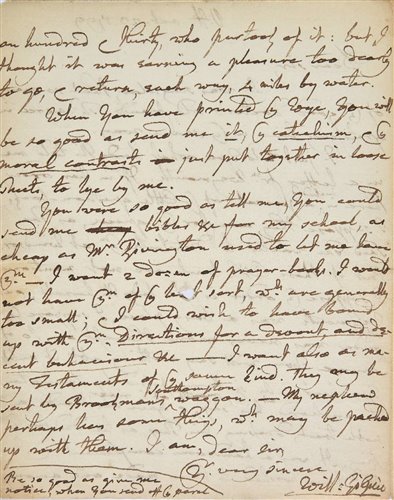 an hundred & thirty, who partook of it: but, I
thought it was earning a pleasure too dearly
to go, & return, each way, 4 miles by water.
When you have printed ye you will
be so good as send me it, ye catechism, & ye
moral contrasts just put together in loose
sheets, to lye by me.
You were so good as tell me, you could
send me bibles &c for my school, as
cheap as Mr Rivington used to let me have
ym — I want 2 dozen of prayer-books. I would
not have ym of ye best sort, wh are generally
too small; I could wish to have bound
up with ym, Directions for a devout, and de-
cent behaviour &c — I want also as ma-
ny Testaments of ye same kind. They may be
Southampton
sent by Brookman's waggon. — My nephew
perhaps has some things, wh may be packed
up with them. I am, dear sir,
Yr very sincere
Will: Gilpin
Be so good as give me
notice, when you send off ye parcel